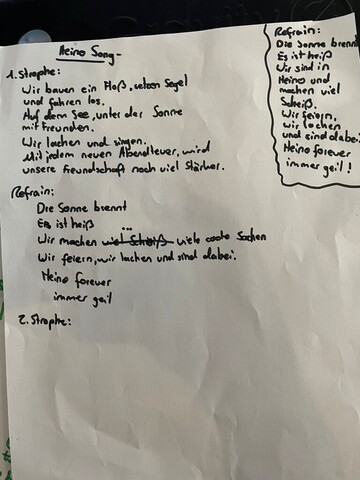 Heino Song-
1. Strophe:
Wir bauen ein Floß, setzen Segel
und fahren los.
Auf dem See, unter der Sonne
mit freunden.
Wir lachen und singen.
Mit jedem neuen Abendteuer, wird
unsere Freundschaft noch viel Stärker.
Refrain:
Die Sonne brennt
Es ist heiß
Wir machen viel Scheiß ... viele coole Sachen
Wir feiern, wir lachen und sind dabei.
Heino forever
immer geil
2. Strophe:
Refrain:
Die Sonne brennt
Es ist heiß
Wir sind in
Heino und
machen viel
Scheiß.
Wir feiern,
wir lachen
und sind dabei
Heino forever
immer geil!